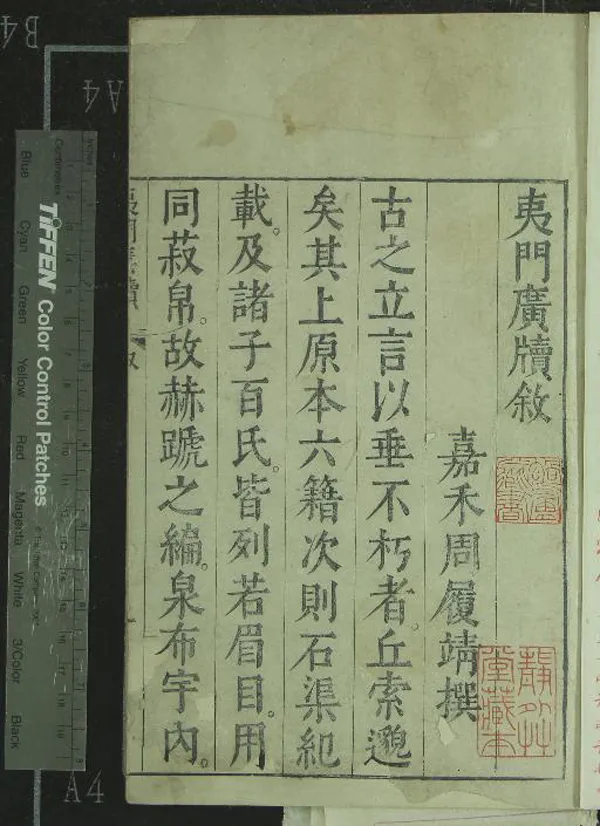 夷門廣牘敘
嘉禾周履靖撰
古之立言以垂不朽者。丘索邈
矣其上原本六籍次則石渠紀
載。及諸子百氏。皆列若眉目。用
同菽帛。故赫蹏之編。泉布宇內。
靜㳺堂藏本
TIFFEN Color Control Patches
Blue Cyan Green Yellow Red Magenta White 3/Color Black
Centimetres
Inches
B4
A4
A4